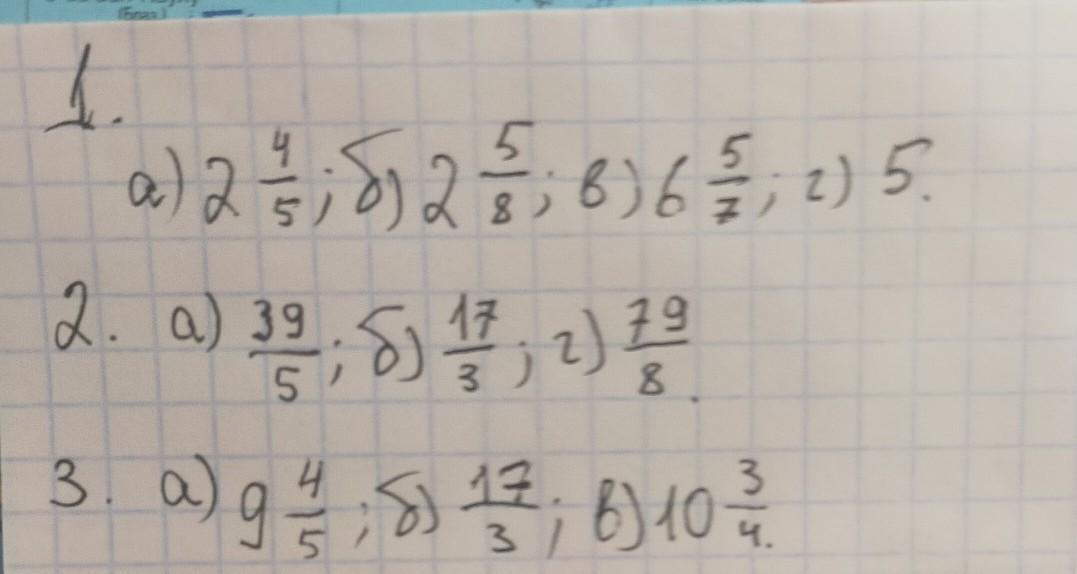 (Браз)
1.
а) 2 4/5; б) 2 5/8; в) 6 5/7; г) 5.
2. а) 39/5; б) 17/3; г) 79/8.
3. а) 9 4/5; б) 17/3; в) 10 3/4.